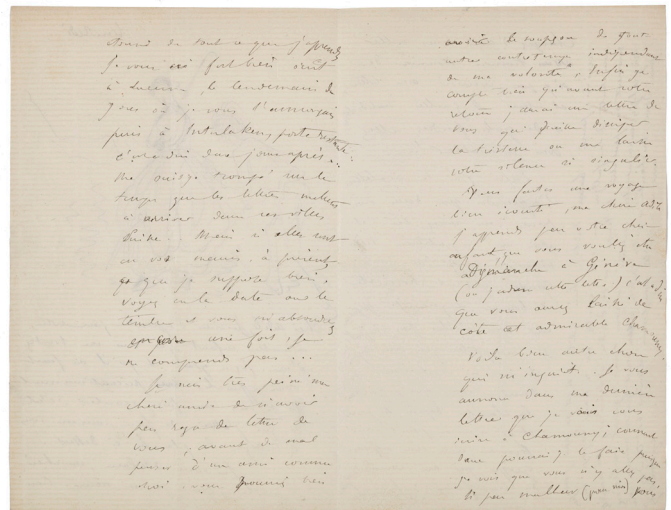 de tout ce que j'apprends
Je vous ai fort bien écrit
à Lucerne, le lendemain du
jour où je vous l'annonçais
puis à Interlaken, poste restante
deux jours après...
Me suis-je trompé sur le
temps que les lettres mettent
à arriver dans ces villes
Mais si elles sont
en vos mains à présent
ce que je suppose bien,
voyez en la date
et vous m'absoudrez
une fois, je
ne comprends pas...
Je suis très peiné ma
chère amie de n'avoir
pas reçu de lettre de
vous, avant de
d'un ami comme
moi, vous pourriez bien
le soupçon de tout
autre contretemps indépendant
de ma volonté. Enfin je
compte bien qu'avant votre
retour j'aurai une lettre de
vous qui dissiper
la tristesse où me laisse
votre silence si singulier.
Vous faites un voyage
bien ma chère
j'apprends par votre cher
enfant que vous voulez être
Dimanche à Genève
(où j'adresse cette lettre) c'est à dire
que vous aurez laissé de
côté cet admirable Chamouny.
Voilà bien autre chose
qui m'inquiète. Je vous
annonce dans ma dernière
lettre que je vais vous
écrire à Chamouny; comment
donc pourrai-je le faire puisque
je vois que vous n'y allez pas,
si par malheur (pour moi)